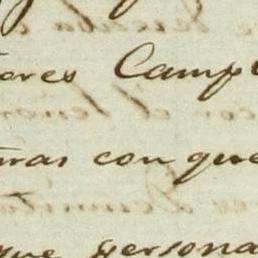 ores Camp
ras con que
que persona